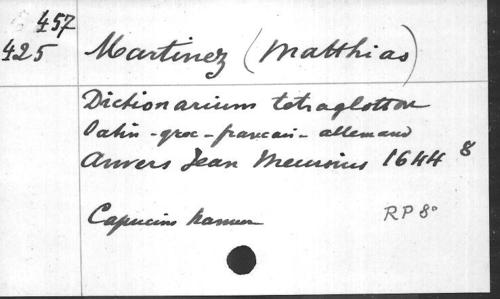 457
425
Martinez (Matthias)
Dictionarium tetraglotton
latin - grec - francais - allemand
Anvers Jean Meursius 1644 8
Capucins Namur
RP 8°